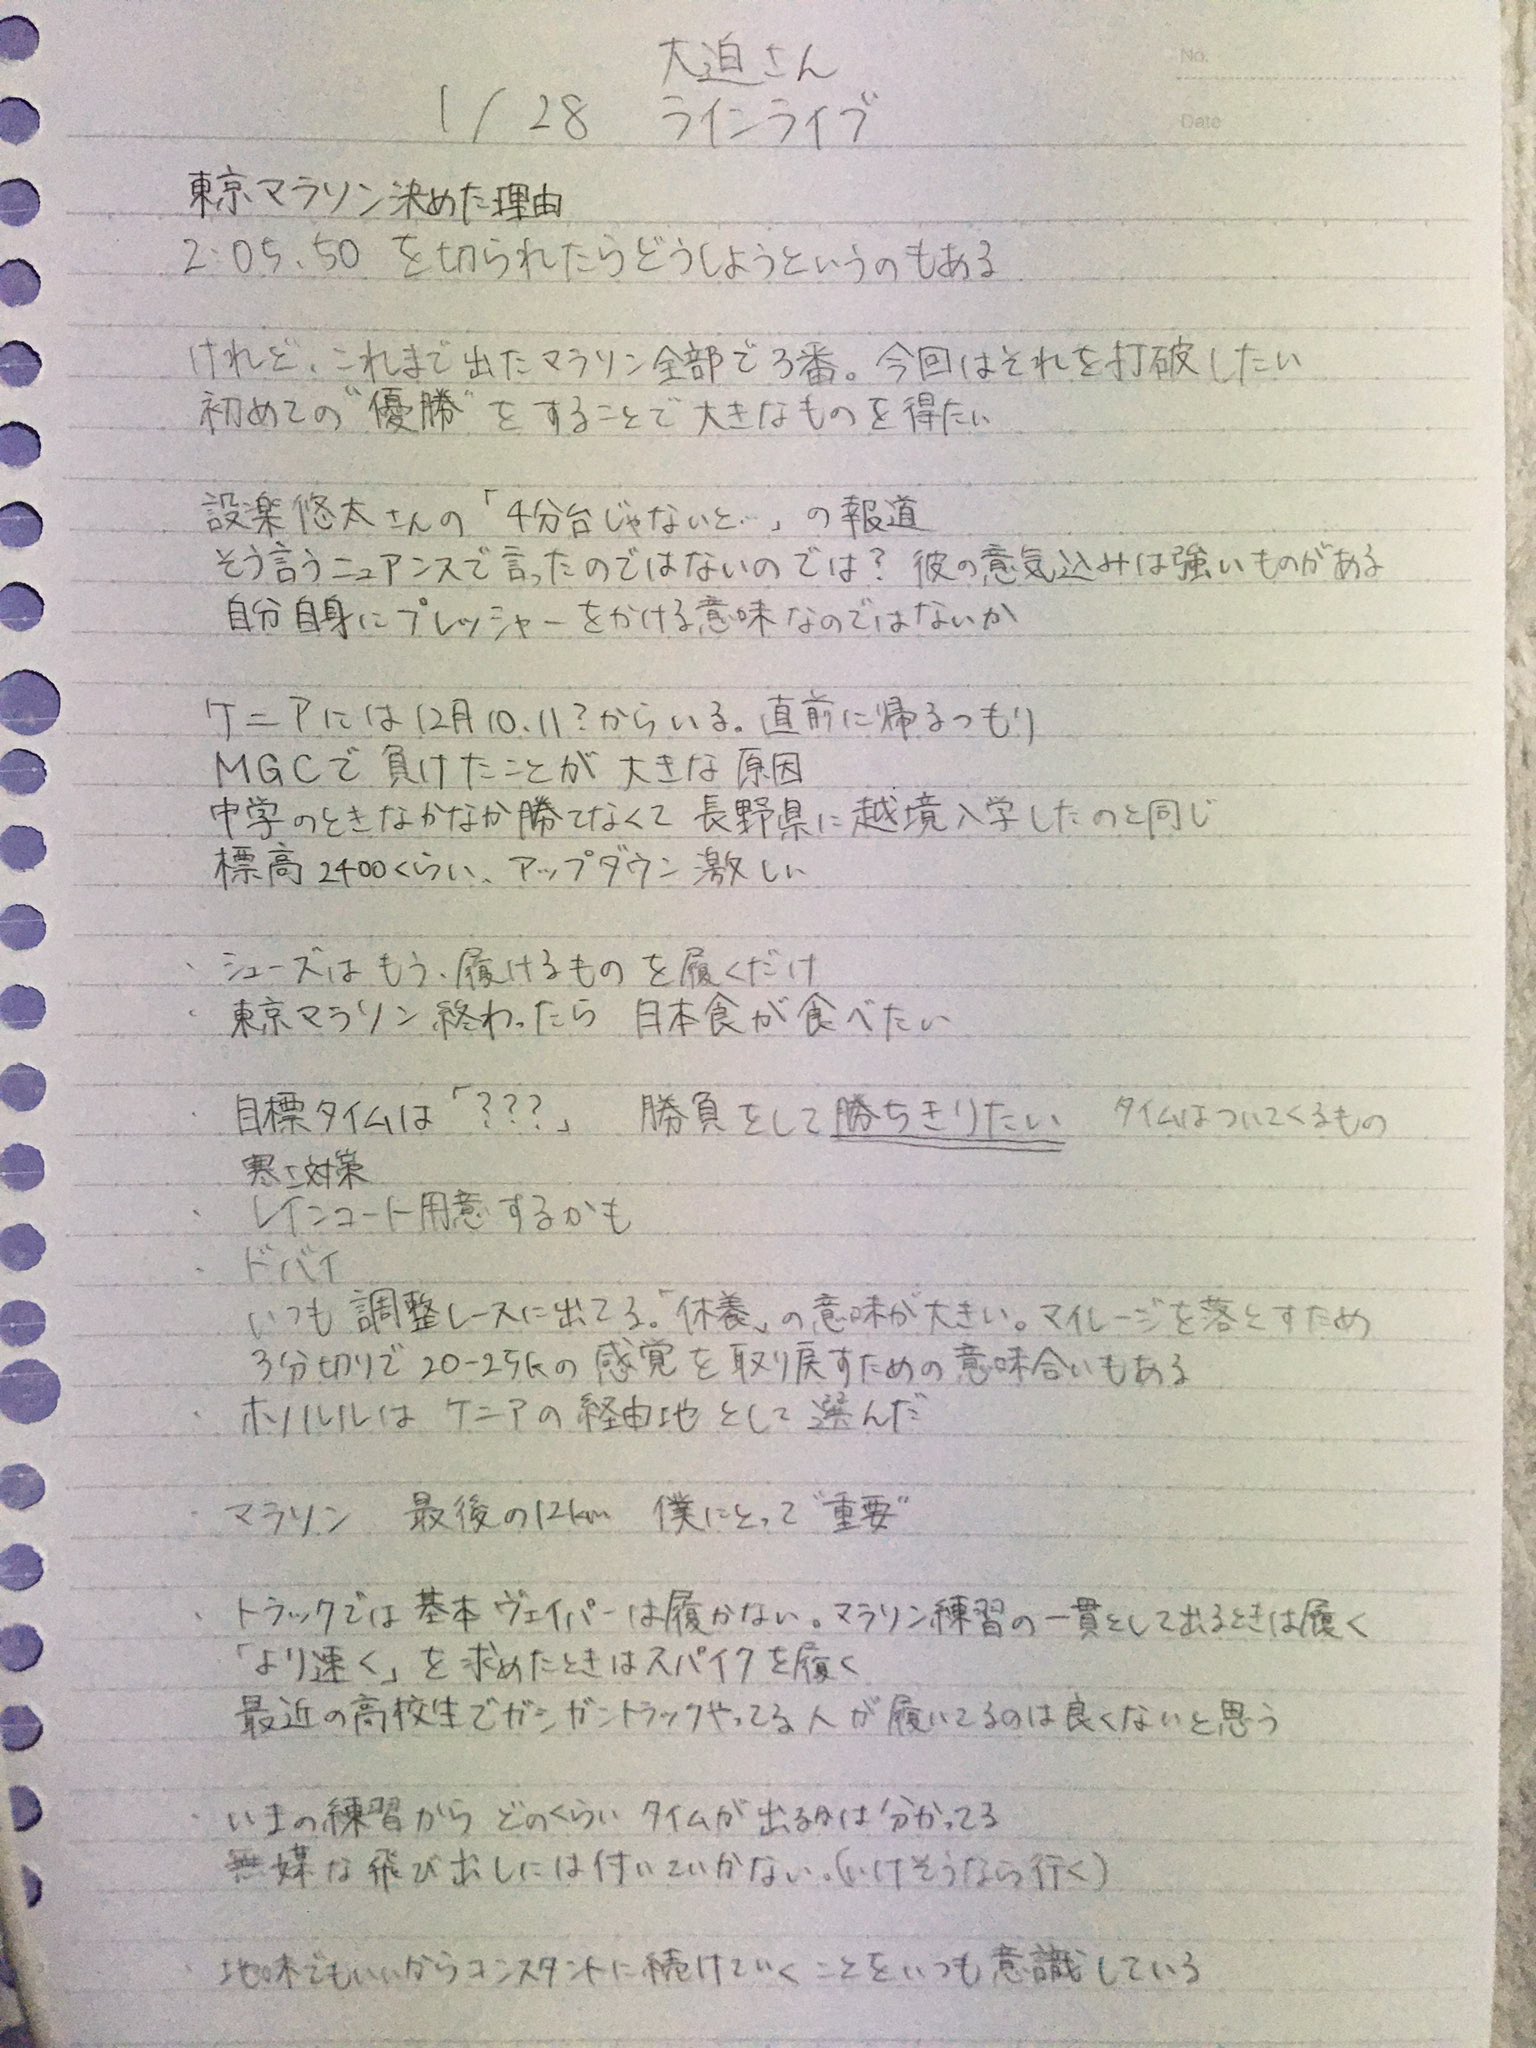 No.
Date
大迫さん
1/28 ラインライブ
東京マラソン決めた理由
2:05.50 を切られたらどうしようというのもある
けれど、これまで出たマラソン全部で3番。今回はそれを打破したい
初めての"優勝"をすることで大きなものを得たい
設楽悠太さんの「4分台じゃないと…」の報道
そう言うニュアンスで言ったのではないのでは？彼の意気込みは強いものがある
自分自身にプレッシャーをかける意味なのではないか
ケニアには12月10.11？からいる。直前に帰るつもり
MGCで負けたことが大きな原因
中学のときなかなか勝てなくて長野県に越境入学したのと同じ
標高2400くらい、アップダウン激しい
・シューズはもう、履けるものを履くだけ
・東京マラソン終わったら 日本食が食べたい
・目標タイムは「？？？」 勝負をして勝ちきりたい タイムはついてくるもの
寒さ対策
・レインコート用意するかも
・ドバイ
いつも調整レースに出てる。「休養」の意味が大きい。マイレージを落とすため
3分切りで20-25kの感覚を取り戻すための意味合いもある
・ホノルルはケニアの経由地として選んだ
・マラソン 最後の12km 僕にとって"重要"
・トラックでは基本ヴェイパーは履かない。マラソン練習の一貫として出るときは履く
「より速く」を求めたときはスパイクを履く
最近の高校生でガンガントラックやってる人が履いてるのは良くないと思う
・いまの練習からどのくらいタイムが出るかは分かってる
無謀な飛び出しには付いていかない。(いけそうなら行く)
・地味でもいいからコンスタントに続けていくことをいつも意識している